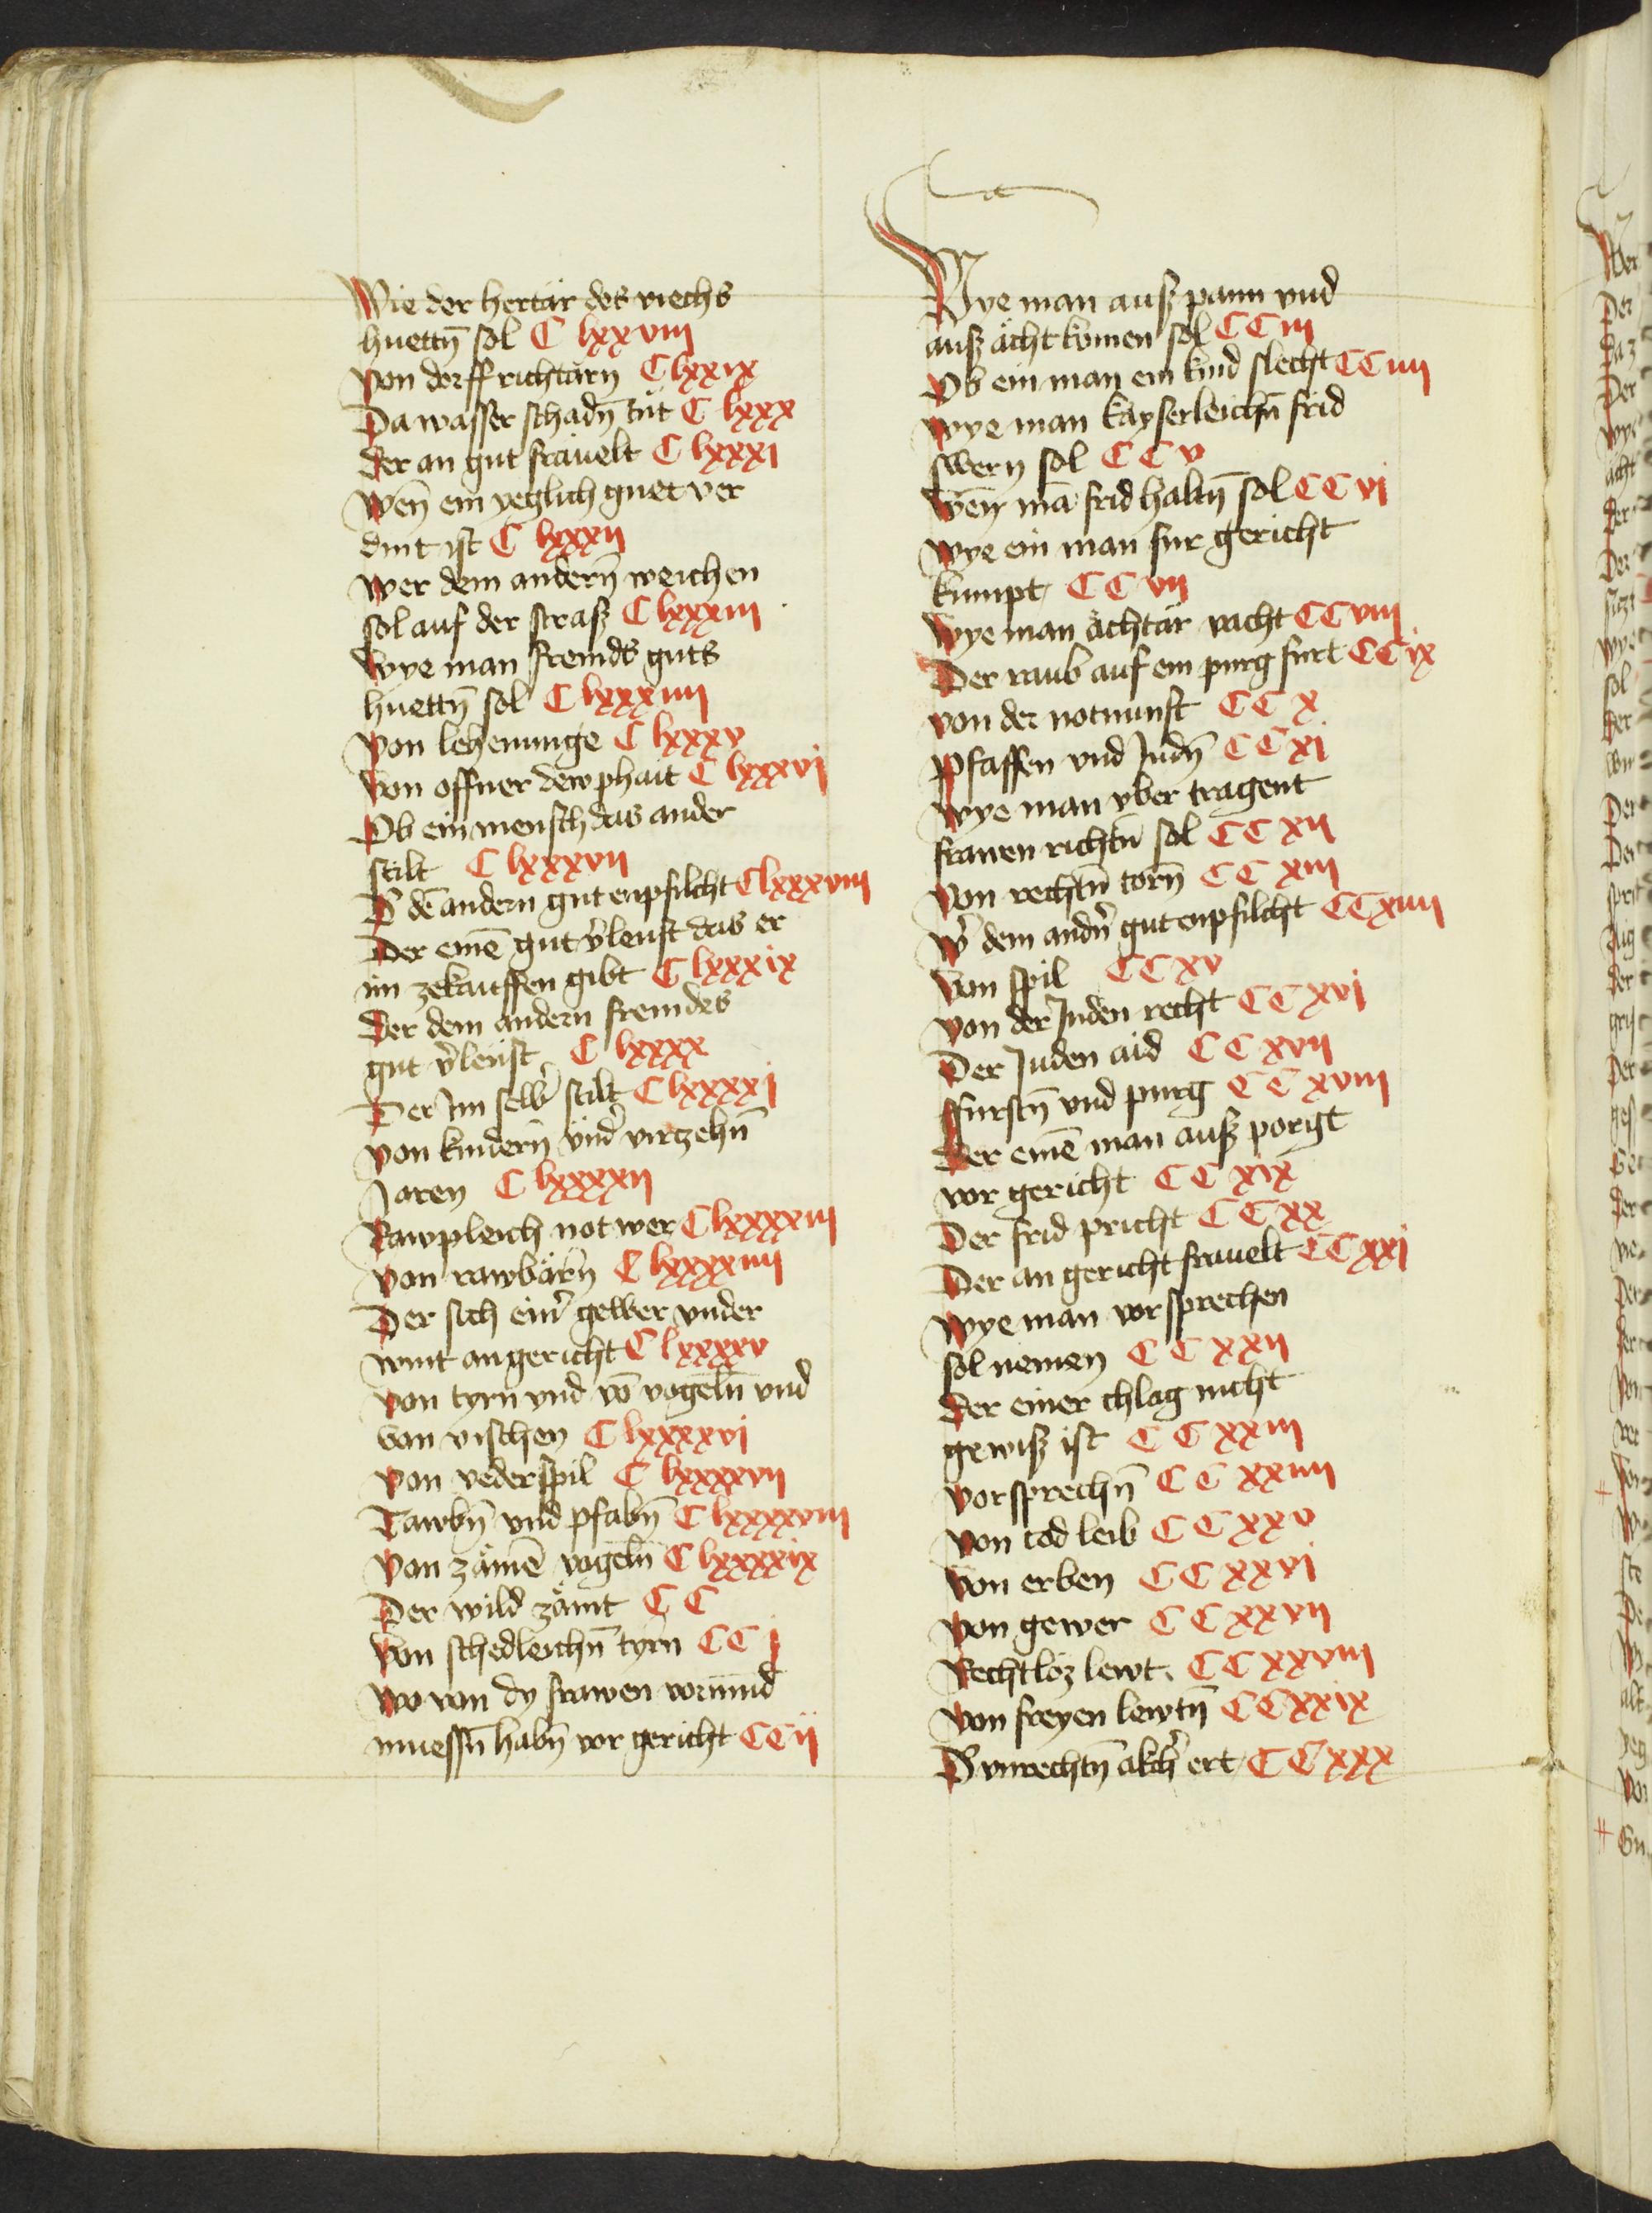 Wie der hertär des viechs
huettn̄ sol C lxxviii
von dorff richtärn C lxxix
Da wasser schadn̄ tüt C lxxx
der an gut fräuelt C lxxxi
wen̄ ein yeglich guet ver
dint ist C lxxxii
wer dem andern̄ weichen
sol auf der straß C lxxxiii
wye man fremds guts
huettn̄ sol C lxxxiiii
von lehenunge C lxxxv
von offner dewphait C lxxxvj
Ob ein mensch das ander
stilt C lxxxvii
D' dē andern gut enpfilcht C lxxxviii
Der einē gut v̉leust das er
im zekauffen gibt C lxxxix
der dem andern fremdes
gut v̉leust C lxxxx
Der Im selb' stilt C lxxxxj
von kindern̄ vnd' virzehn̄
Jaren C lxxxxii
Rawpleich not wer C lxxxxiii
von rawbärn̄ C lxxxxiiii
Der sich ein' gewer vnder
wint an gericht C lxxxxv
von tyrn vnd vō vogeln̄ vnd
von vischen C lxxxxvj
von vederspil C lxxxxvii
Tawbn̄ vnd pfabn̄ C lxxxxviii
von zämē vogeln̄ C lxxxxix
Der wild zämt C C
von schedleichn̄ tyrn C C j
wo von dy frawen vormūd
muessn̄ habn̄ vor gericht CC ij
Wye man auß pann vnd
auß ächt komen sol CC iii
Ob ein man ein kind slecht CC iiii
wye man kayserleichn̄ frid
swern sol C C v
wen̄ mā frid haltn̄ sol C C vj
wye ein man fur gericht
kumpt C C vii
wye man ächtär vacht CC viii
Der raub auf ein purg furt CC ix
von der notnunft C C x
Pfaffen vnd Judn̄ C C xj
wye man vber tragent
frauen richtn̄ sol CC xii
von rechtn̄ torn̄ C C xiii
w' dem andn̉ gut enpfilcht CC xiiii
von spil CC xv
von der Juden recht CC xvj
Der Juden aid C C xvii
ffurstn̄ vnd purg C C xviii
der einē man auß porigt
vor gericht C C xix
Der frid pricht C C xx
Der an gericht frauelt CC xxj
wye man vorsprechen
sol nemen C C xxii
der einer chlag nicht
gewiß ist C C xxiii
vorsprechn̄ C C xxiiii
von tod leib C C xxv
von erben C C xxvj
von gewer C C xxvii
Rechtloz lewt. C C xxviii
von freyen lewtn̄ C C xxix
D' vnrechtn̄ akch' ert C C xxx